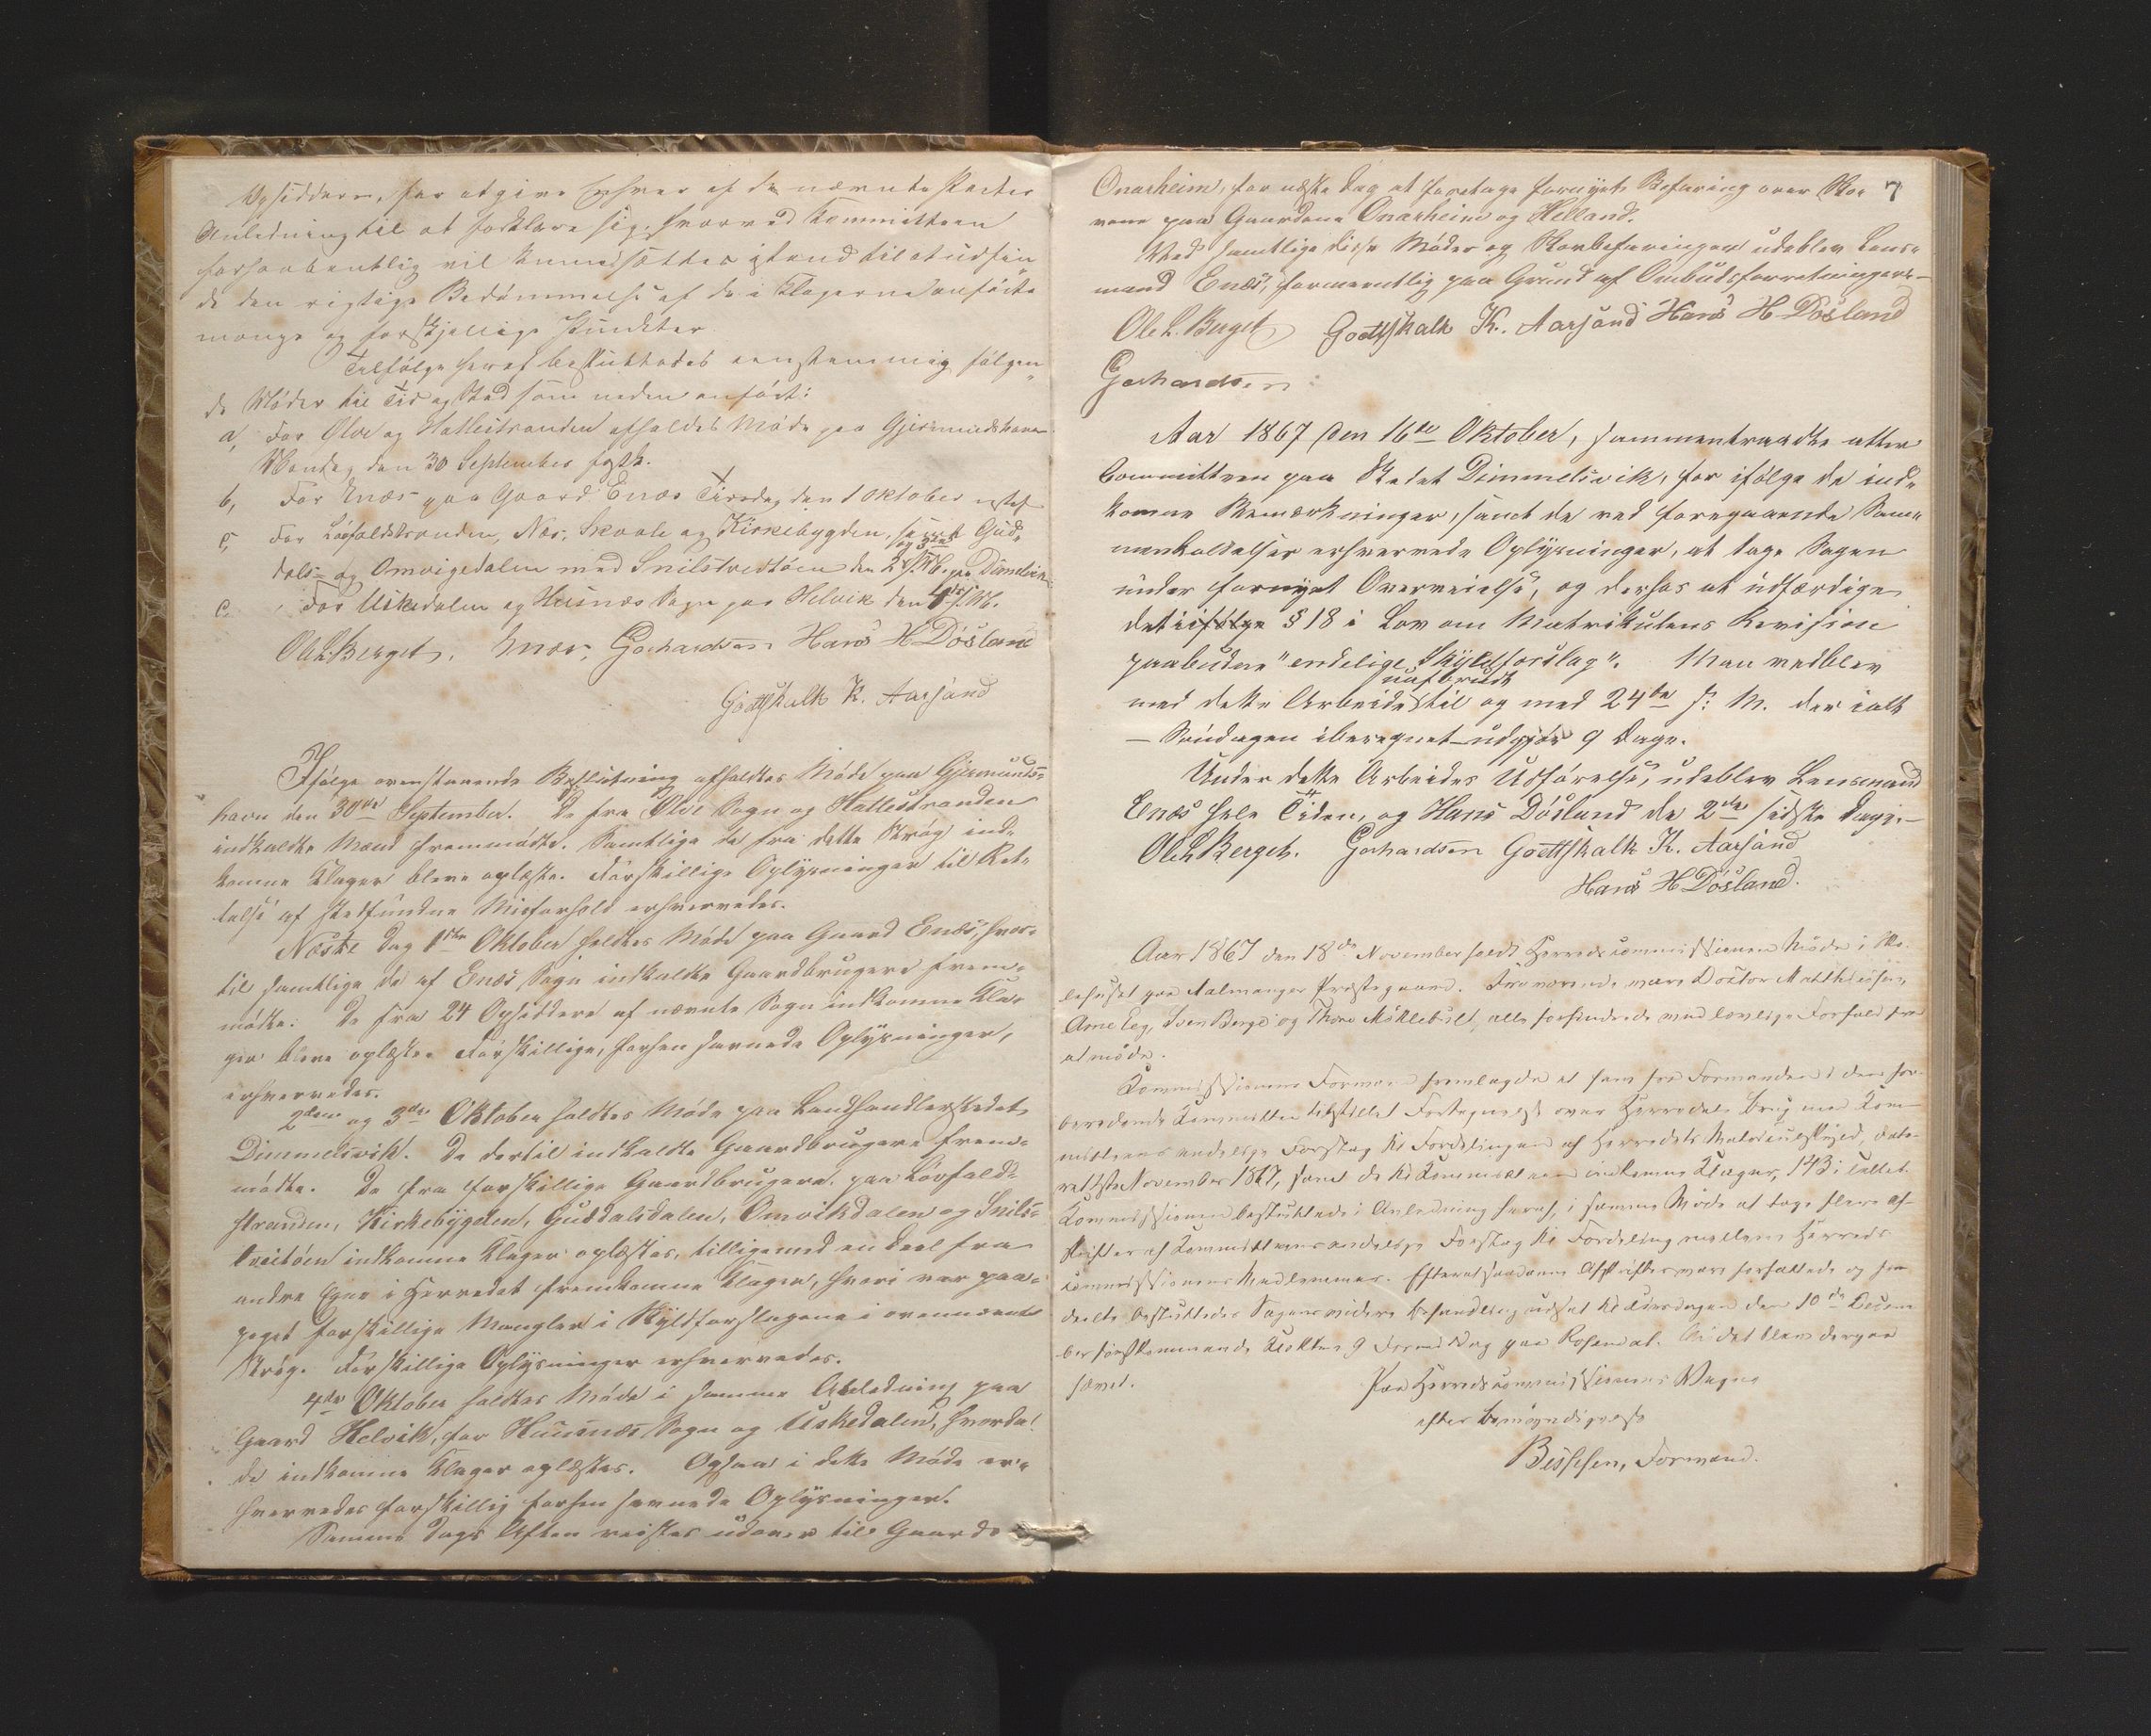 Opsiddere, for at give Enhver af de nævnte Parter
Anledning til at forklare sig, hvorved Committeen
forhaabentlig vil kunne sættes istand til at udfin„
de den rigtige Bedømmelse af de i Klagerne anførte
mange og forskjellige Punkter.
Tilfølge heraf besluttedes eenstemmig følgen„
de Møder til Tid og Sted som neden anført:
a, For Ølve og Hatlestranden afholdes Møde paa Gjermundshavn
Mandag den 30 September førstk.
b, For Enæs paa Gaard Enæs Tirsdag den 1 Oktober
c, For Løfaldstranden, Nes, Skaale og Kirkebygden, samt Gud„
dals- og Omvigedalen med Snilstvedtøen den 2 og 3die s. M. paa Dimelsvik
c. For Uskedalen og Husnæs Sogn paa Helvik den 4de s. M.
Ole L. Berget. Enæs, Gerhardsen Hans H Døsland
Gøttskalk K. Aarsand
Ifølge ovenstaaende Beslutning afholdtes Møde paa Gjermunds=
havn den 30de September. De fra Ølve Sogn og Hatlestranden
indkaldte Mænd fremmødte. Samtlige de fra dette Strøg ind„
komne Klager bleve oplæste. Forskillige Oplysninger til Ret„
telse af stedfundne Misforhold erhvervedes.
Næste Dag 1ste Oktober holdtes Møde paa Gaard Enæs, hvor„
til samtlige de af Enæs Sogn indkaldte Gaardbrugere frem„
mødte. De fra 24 Opsiddere af nævnte Sogn indkomne Kla„
ger bleve oplæste. Forskillige, forhen savnede Oplysninger,
erhvervedes.
2den og 3die Oktober holdtes Møde paa Landhandlerstedet
Dimmelsvik. De dertil indkaldte Gaardbrugere frem„
mødte. De fra forskillige Gaardbrugere paa Løvfald=
stranden, Kirkebygden, Guddalsdalen, Omvikdalen og Snils=
tveitøen indkomne Klager oplæstes, tilligemed en Deel fra
andre Egne i Herredet fremkomne Klager, hvori var paa„
peget forskillige Mangler i Skyldforslagene i ovennævnte
Strøg. Forskillige Oplysninger erhvervedes.
4de Oktober holdtes Møde i samme Anledning paa
Gaard Helvik, for Huusnæs Sogn og Uskedalen, hvorda
de indkomne Klager oplæstes. Ogsaa i dette Møde er„
hvervedes forskillig forhen savnede Oplysninger.
Samme Dags Aften reistes udover til Gaarde
7
Onarheim, for næste Dag at foretage fornyet Befaring over Sko„
vene paa Gaardene Onarheim og Helland.
Ved samtlige disse Møder og Skovbefaringer udeblev Lens„
mand Enæs, formeentlig paa Grund af Ombudsforretninger.—
Ole L. Berget Gøttskalk K. Aarsand Hans H Døsland
Gerhardsen
Aar 1867 den 16de Oktober, sammentraadte atter
Committeen paa Stedet Dimmelsvik, for ifølge de ind„
komne Bemærkninger, samt de ved foregaaende Sam„
menholdelser erhvervede Oplysninger, at tage Sagen
under fornyet Overveielse, og derhos at udfærdige
det i ifølge § 18 i Lov om Matrikulens Revision
paabudne "endelige Skyldforslag". Man vedblev
med dette Arbeide uafbrudt til og med 24de s: M. der ialt
— Søndagen iberegnet — udgjør 9 Dage.
Under dette Arbeides Udførelse, udeblev Lensmand
Enæs hele Tiden, og Hans Døsland de 2de sidste Dage.—
Ole L Berget. Gerhardsen Gøttskalk K. Aarsand
Hans H Døsland.
Aar 1867 den 18de November holdt Herredscommissionen Møde i Sko„
lehuset paa Malmanger Præstegaard. Fraværende vare Doktor Matthiessen,
Arne Eeg, Sven Berge og Thore Mehlebust, alle forhindrede ved lovlige Forfald fra
at møde.
Kommissionens Formand fremlagde et ham fra Formanden i den for„
beredende Kommitte tilstillet Fortegnelse over Herredets Brug med Kom„
mitteens endelige Forslag til Fordelingen af Herredets Matrikulskyld, date„
ret November 1867, samt de til Kommitteen indkomne Klager, 143 i Tallet.
Kommissionen besluttede i Anledning heraf, i samme Møde at tage flere Af„
skrifter af Kommitteens endelige Forslag til Fordeling mellem Herreds„
commissionens Medlemmer. Efterat saadanne Afskrifter vare forfattede og for„
deelte besluttedes Sagens videre Behandling udsat til Tirsdagen den 10de Decem
ber førstkommende Klokken 9 Formiddag paa Rosendal. Mødet blev derpaa
hævet.
Paa Herredscommissionens Vegne
efter Bemyndigelse
Bessesen, Formand.